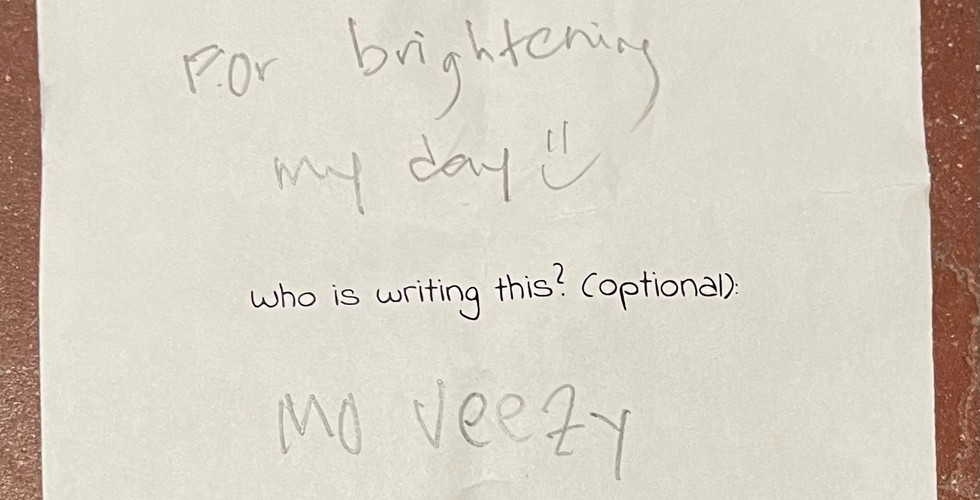 For brightening
my day
who is writing this? (optional):
Mo Veezy